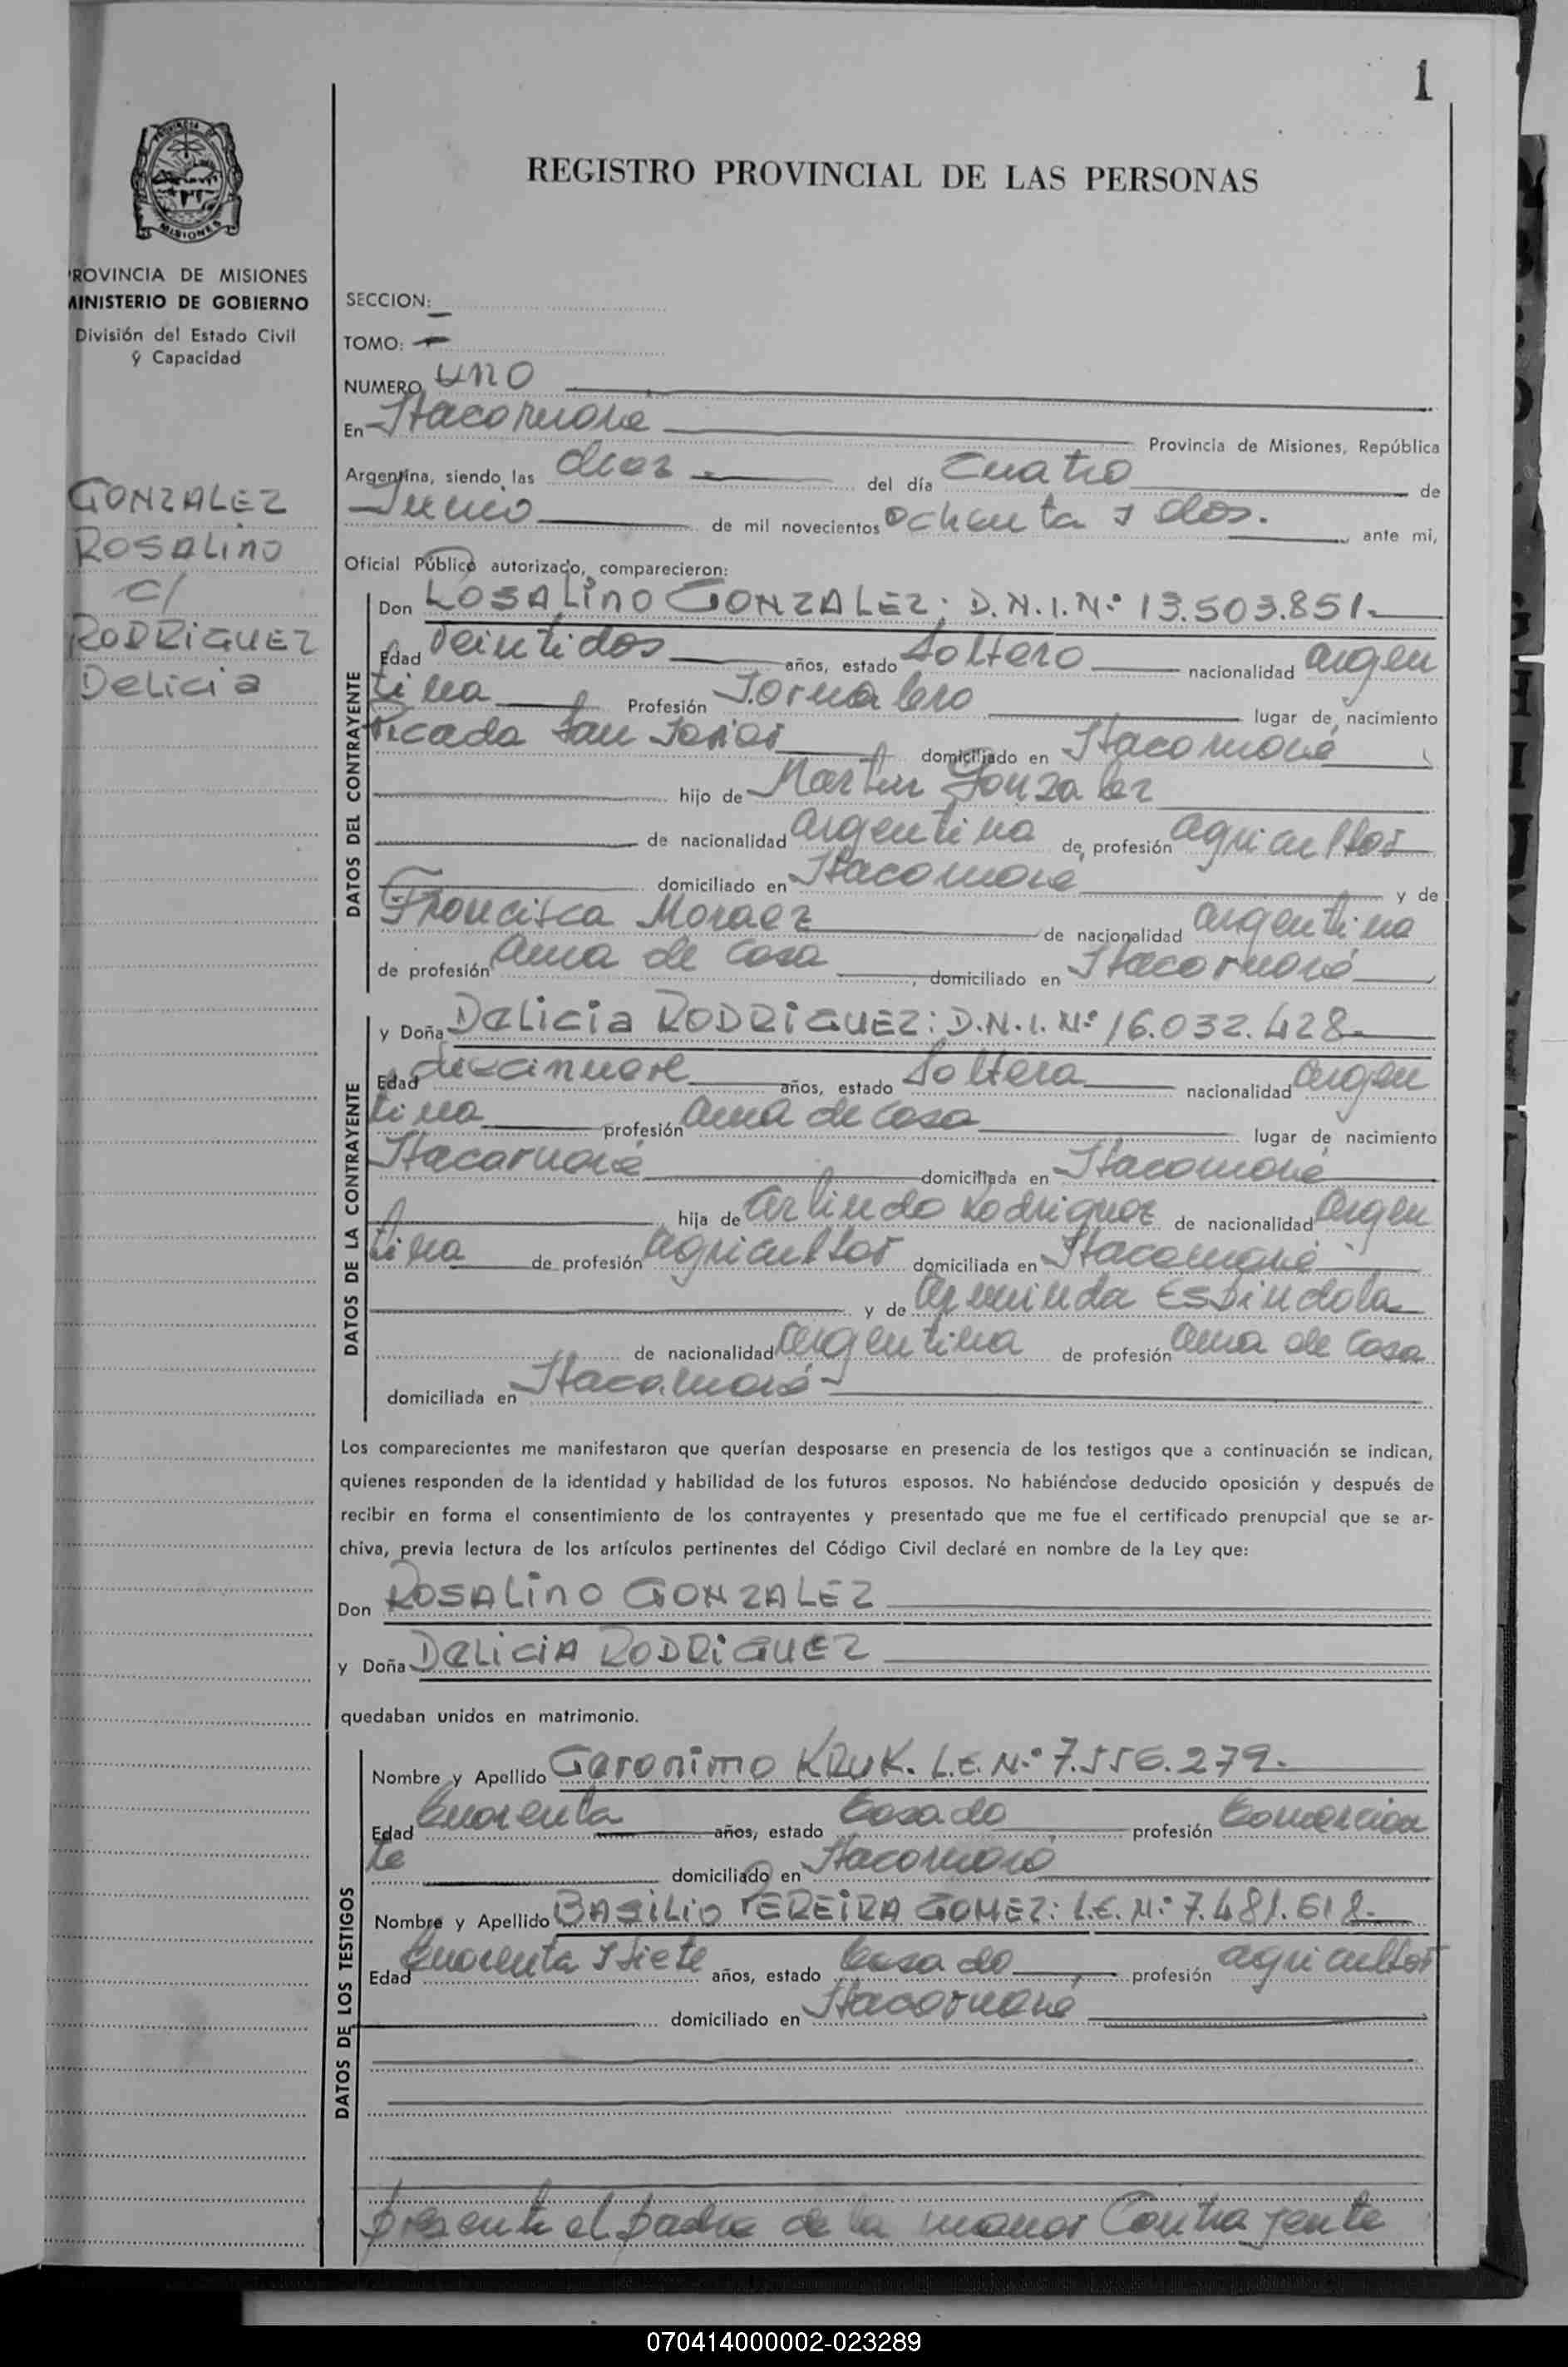 1
REGISTRO PROVINCIAL DE LAS PERSONAS
PROVINCIA DE
MISIONES
ROVINCIA DE MISIONES
MINISTERIO DE GOBIERNO
División del Estado Civil
y Capacidad
GONZALEZ
ROSALINO
C/
RODRIGUEZ
Delicia
SECCION: —
TOMO: —
NUMERO uno
En Itacaruaré Provincia de Misiones, República
Argentina, siendo las diez del día cuatro de
Junio de mil novecientos ochenta y dos. ante mi,
Oficial Público autorizado, comparecieron:
DATOS DEL CONTRAYENTE
Don ROSALINO GONZALEZ: D.N.I.Nº 13.503.851.
Edad veintidos años, estado Soltero nacionalidad argen
tina Profesión Jornalero lugar de nacimiento
Picada San Javier domiciliado en Itacaruaré
hijo de Martin Gonzalez
de nacionalidad argentina de profesión agricultor
domiciliado en Itacaruaré y de
Francisca Moraez de nacionalidad argentina
de profesión ama de casa, domiciliado en Itacaruaré
DATOS DE LA CONTRAYENTE
y Doña DELICIA RODRIGUEZ: D.N.I. Nº 16.032.428.
Edad diecinueve años, estado Soltera nacionalidad argen
tina profesión ama de casa lugar de nacimiento
Itacaruaré domiciliada en Itacaruaré
hija de Arlindo Rodriguez de nacionalidad argen
tina de profesión agricultor domiciliada en Itacaruaré
y de Erminda Espindola
de nacionalidad argentina de profesión ama de casa
domiciliada en Itacaruaré
Los comparecientes me manifestaron que querían desposarse en presencia de los testigos que a continuación se indican,
quienes responden de la identidad y habilidad de los futuros esposos. No habiéndose deducido oposición y después de
recibir en forma el consentimiento de los contrayentes y presentado que me fue el certificado prenupcial que se ar-
chiva, previa lectura de los artículos pertinentes del Código Civil declaré en nombre de la Ley que:
Don ROSALINO GONZALEZ
y Doña DELICIA RODRIGUEZ
quedaban unidos en matrimonio.
DATOS DE LOS TESTIGOS
Nombre y Apellido Geronimo KRUK. L.E. Nº 7.556.279.
Edad Cuarenta años, estado Casado profesión Comercian
te domiciliado en Itacaruaré
Nombre y Apellido BASILIO PEREIRA GOMEZ: L.E. Nº 7.481.618.
Edad Cuarenta y siete años, estado Casado profesión agricultor
domiciliado en Itacaruaré
presente el padre de la menor Contrayente
070414000002-023289